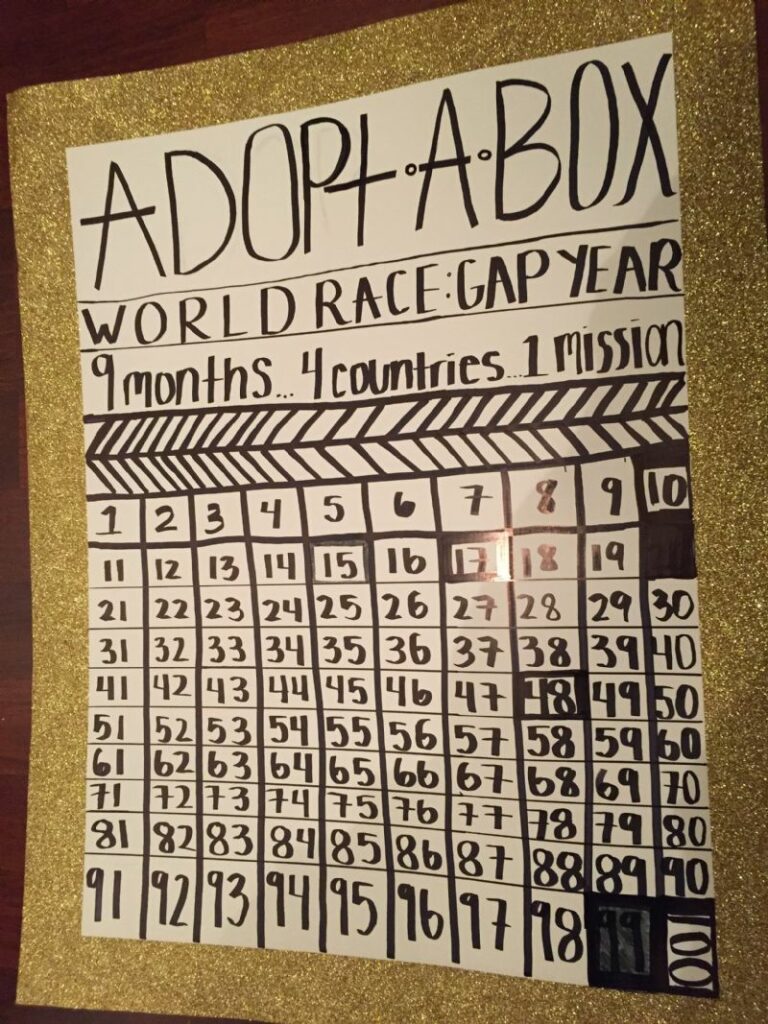 ADOPT·A·BOX
WORLD RACE:GAP YEAR
9 months... 4 countries...1 mission
1 2 3 4 5 6 7 8 9 10
11 12 13 14 15 16 17 18 19
21 22 23 24 25 26 27 28 29 30
31 32 33 34 35 36 37 38 39 40
41 42 43 44 45 46 47 48 49 50
51 52 53 54 55 56 57 58 59 60
61 62 63 64 65 66 67 68 69 70
71 72 73 74 75 76 77 78 79 80
81 82 83 84 85 86 87 88 89 90
91 92 93 94 95 96 97 98 99 100